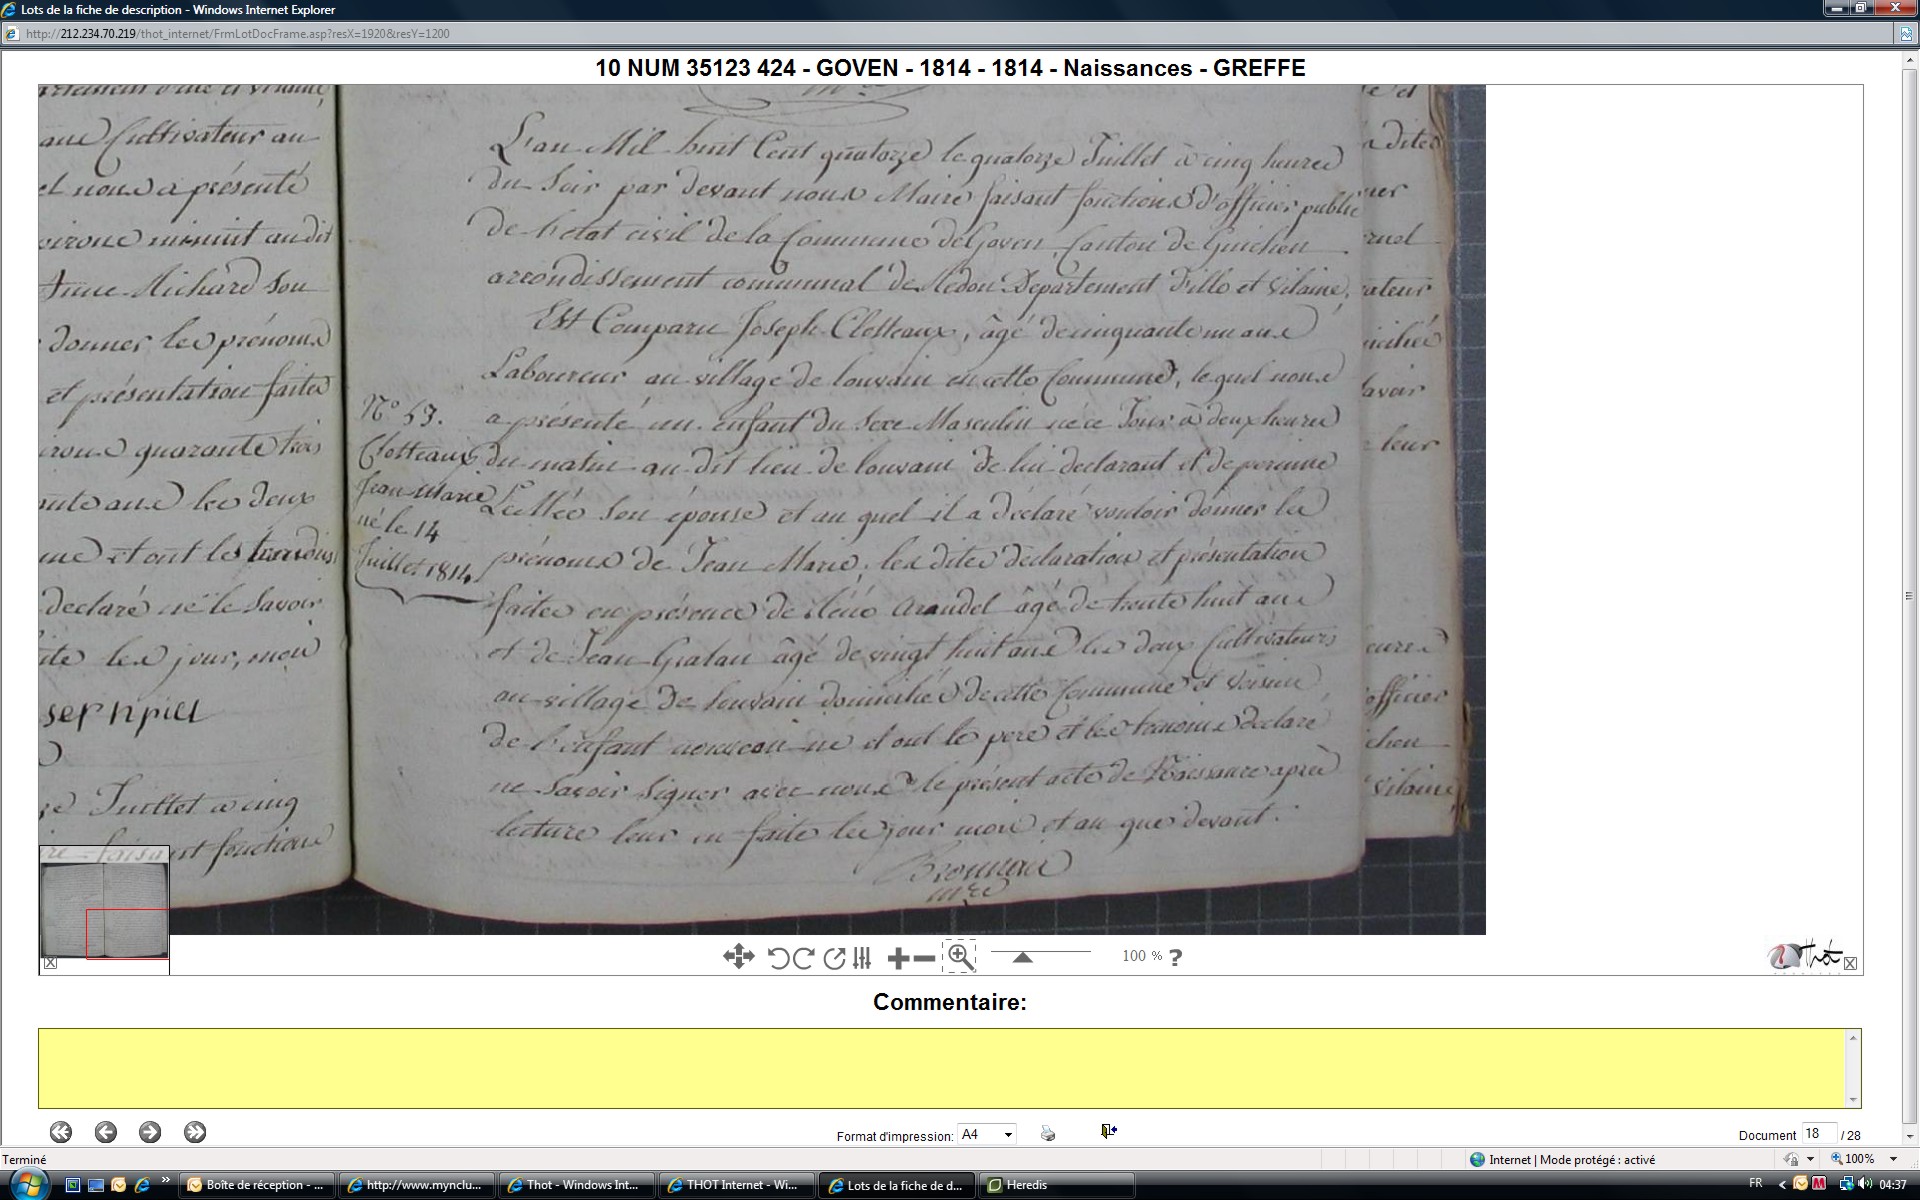 Lots de la fiche de description - Windows Internet Explorer
http://212.234.70.219/thot_internet/FrmLotDocFrame.asp?resX=1920&resY=1200
10 NUM 35123 424 - GOVEN - 1814 - 1814 - Naissances - GREFFE
Cultivateur au
et nous a présenté
minuit au dit
Michard son
donner les prénoms
et présentation faites
quarante trois
ans les deux
et ont les
declaré ne le Savoir
les jour, mois
Juillet à cinq
faisant fonctions
L'an Mil huit Cent quatorze le quatorze Juillet à cinq heures
du Soir par devant nous Maire faisant fonctions d'officier public
de l'état civil de la Commune de Goven, Canton de Guichen
arrondissement communal de Redon Département d'Ille et Vilaine,
Est Comparu Joseph Clotteaux, âgé de cinquante un ans
Laboureur au village de louvain en cette Commune, lequel nous
a présenté un enfant du Sexe Masculin né ce Jour à deux heures
du matin au dit lieu de louvain de lui declarant et de perinne
son épouse et au quel il a déclaré vouloir donner les
prénoms de Jean Marie, les dites déclaration et présentation
faites en présence de Réné Arandel âgé de trente huit ans
et de Jean Gratau âgé de vingt huit ans les deux Cultivateurs
au village de louvain domiciliés de cette Commune et voisins
de l'enfant nouveau-né et ont le père et les temoins declaré
ne Savoir Signer avec nous le présent acte de Naissance après
lecture leur en faite les jour mois et an que devant.
mre
N° 53.
Clotteaux
Jean Marie
né le 14
Juillet 1814.
dites
ruel
savoir
leur
officier
Vilaine
100 %
?
Thot
Commentaire:
Format d'impression: A4
Document 18 / 28
Terminé
Internet | Mode protégé : activé
100%
Boîte de réception - ...
http://www.mynclu...
Thot - Windows Int...
THOT Internet - Wi...
Lots de la fiche de d...
Heredis
FR
04:37